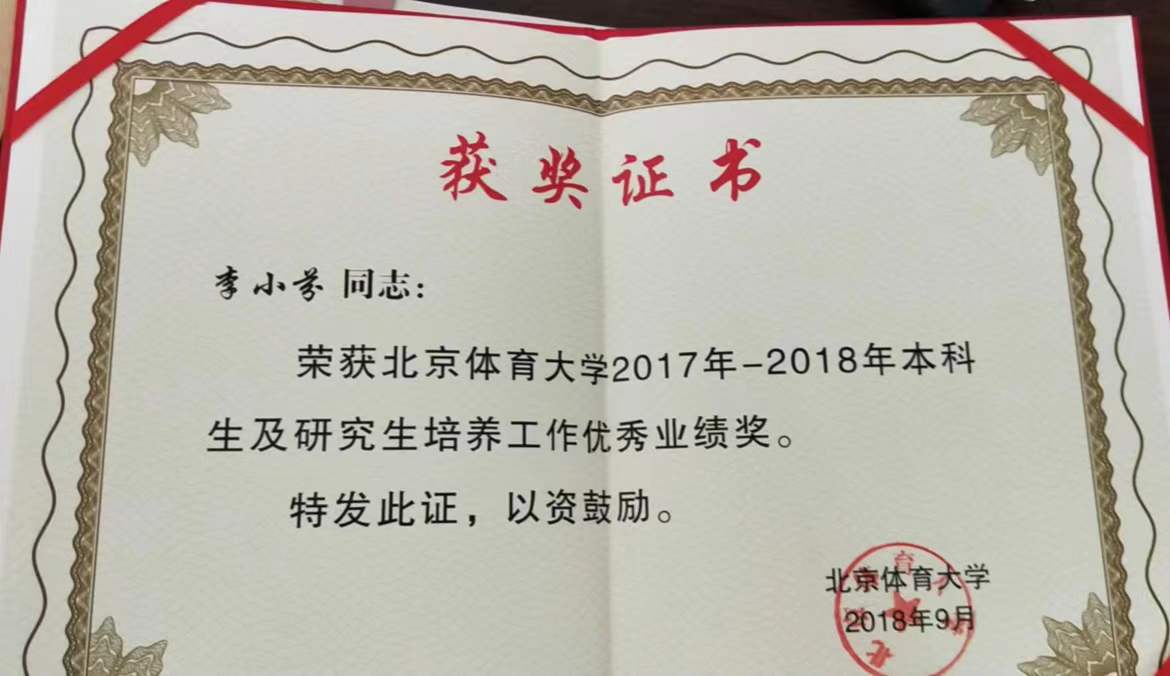 获奖证书
李小芬 同志：
荣获北京体育大学2017年-2018年本科
生及研究生培养工作优秀业绩奖。
特发此证，以资鼓励。
北京体育大学
2018年9月
北京体育大学